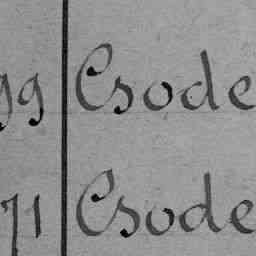 99 Csode
71 Csode